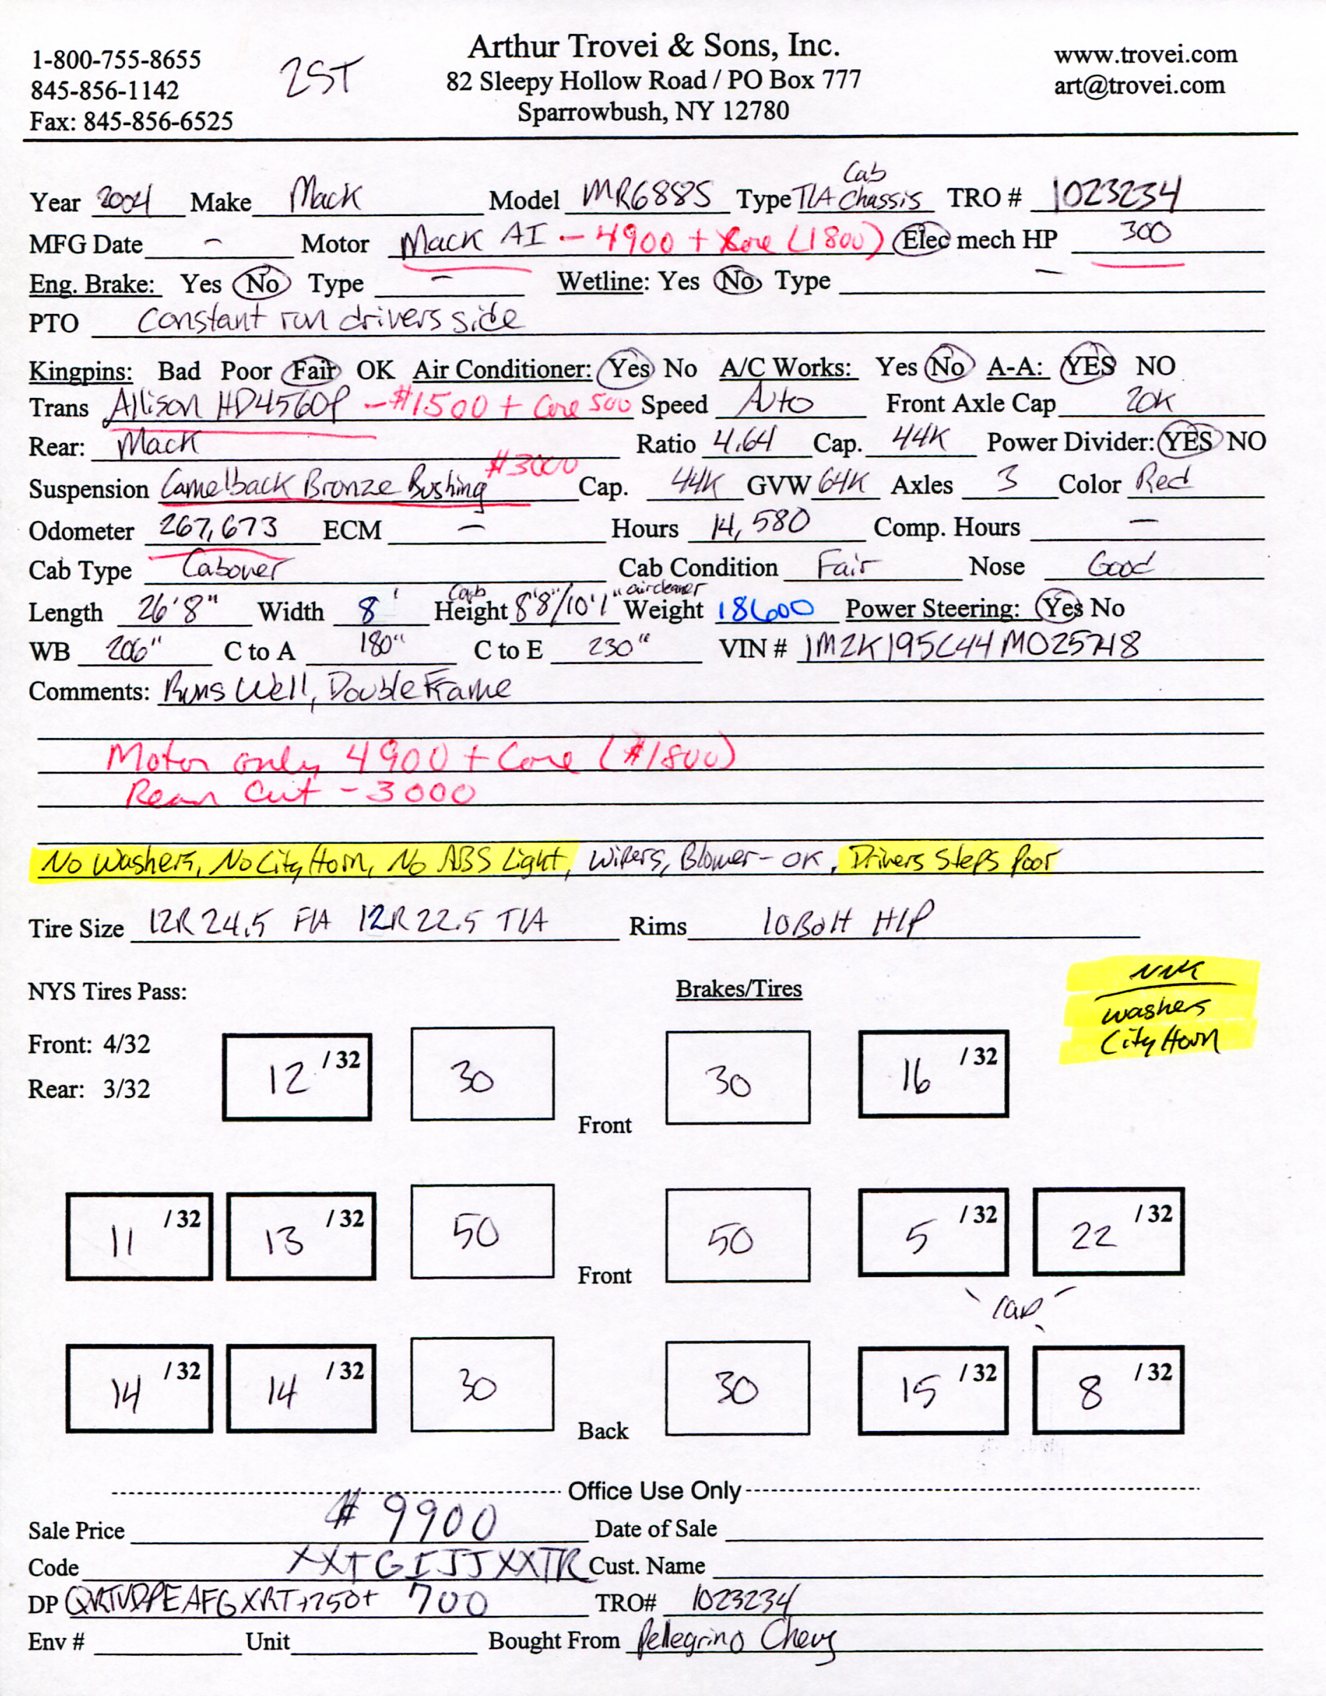 1-800-755-8655
845-856-1142
Fax: 845-856-6525
2ST
Arthur Trovei & Sons, Inc.
82 Sleepy Hollow Road / PO Box 777
Sparrowbush, NY 12780
www.trovei.com
art@trovei.com
Year 2004 Make Mack Model MR688S Type T/A Cab Chassis TRO # 1023234
MFG Date - Motor Mack AI - 4900 + Core (1800) Elec mech HP 300
Eng. Brake: Yes No Type - Wetline: Yes No Type -
PTO Constant run drivers side
Kingpins: Bad Poor Fair OK Air Conditioner: Yes No A/C Works: Yes No A-A: YES NO
Trans Allison HD4560P - $1500 + Core 500 Speed Auto Front Axle Cap 20K
Rear: Mack Ratio 4.64 Cap. 44K Power Divider: YES NO
Suspension Camelback Bronze Bushing $3000 Cap. 44K GVW 64K Axles 3 Color Red
Odometer 267,673 ECM - Hours 14,580 Comp. Hours -
Cab Type Cabover Cab Condition Fair Nose Good
Length 26'8" Width 8' Height Cab 8'8"/10'1" aircleaner Weight 18600 Power Steering: Yes No
WB 206" C to A 180" C to E 230" VIN # 1M2K195C44M025218
Comments: Runs Well, Double Frame
Motor only 4900 + Core ($1800)
Rear Cut - 3000
No Washers, No City Horn, No ABS Light, Wipers, Blower - OK, Drivers Steps Poor
Tire Size 12R24.5 F/A 12R22.5 T/A Rims 10 Bolt H/P
NYS Tires Pass: Brakes/Tires
washers
City Horn
Front: 4/32
Rear: 3/32
12 /32 30 Front 30 16 /32
11 /32 13 /32 50 Front 50 5 /32 22 /32
cap
14 /32 14 /32 30 Back 30 15 /32 8 /32
Office Use Only
Sale Price $9900 Date of Sale
Code XXTGIJJXXTR Cust. Name
DP 700 TRO# 1023234
Env # Unit Bought From Pellegrino Chevy